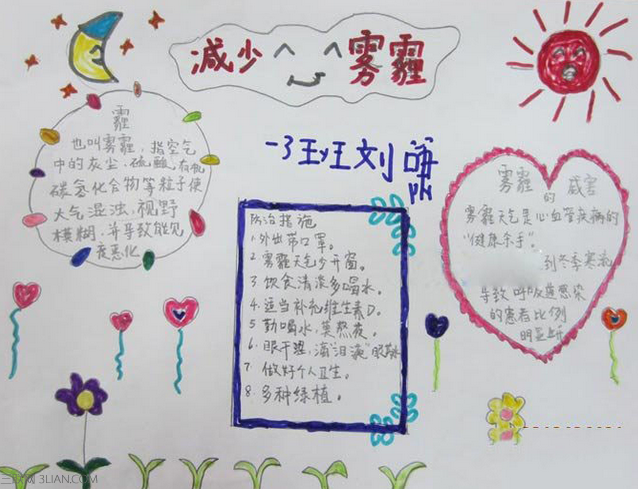 减少 雾霾
霾
也叫雾霾，指空气
中的灰尘、硫酸、有机
碳氢化合物等粒子使
大气混浊，视野
模糊，并导致能见
度恶化
一3班 刘
防治措施
1.外出带口罩。
2.雾霾天气少开窗。
3.饮食清淡多喝水。
4.适当补充维生素D。
5.勤喝水，莫熬夜。
6.眼干涩，滴“泪液”眼
7.做好个人卫生。
8.多种绿植。
雾霾的
威害
雾霾天气是心血管疾病的
“健康杀手”。
到冬季寒流
导致呼吸道感染
的患者比例
明显上升
3LIAN.COM